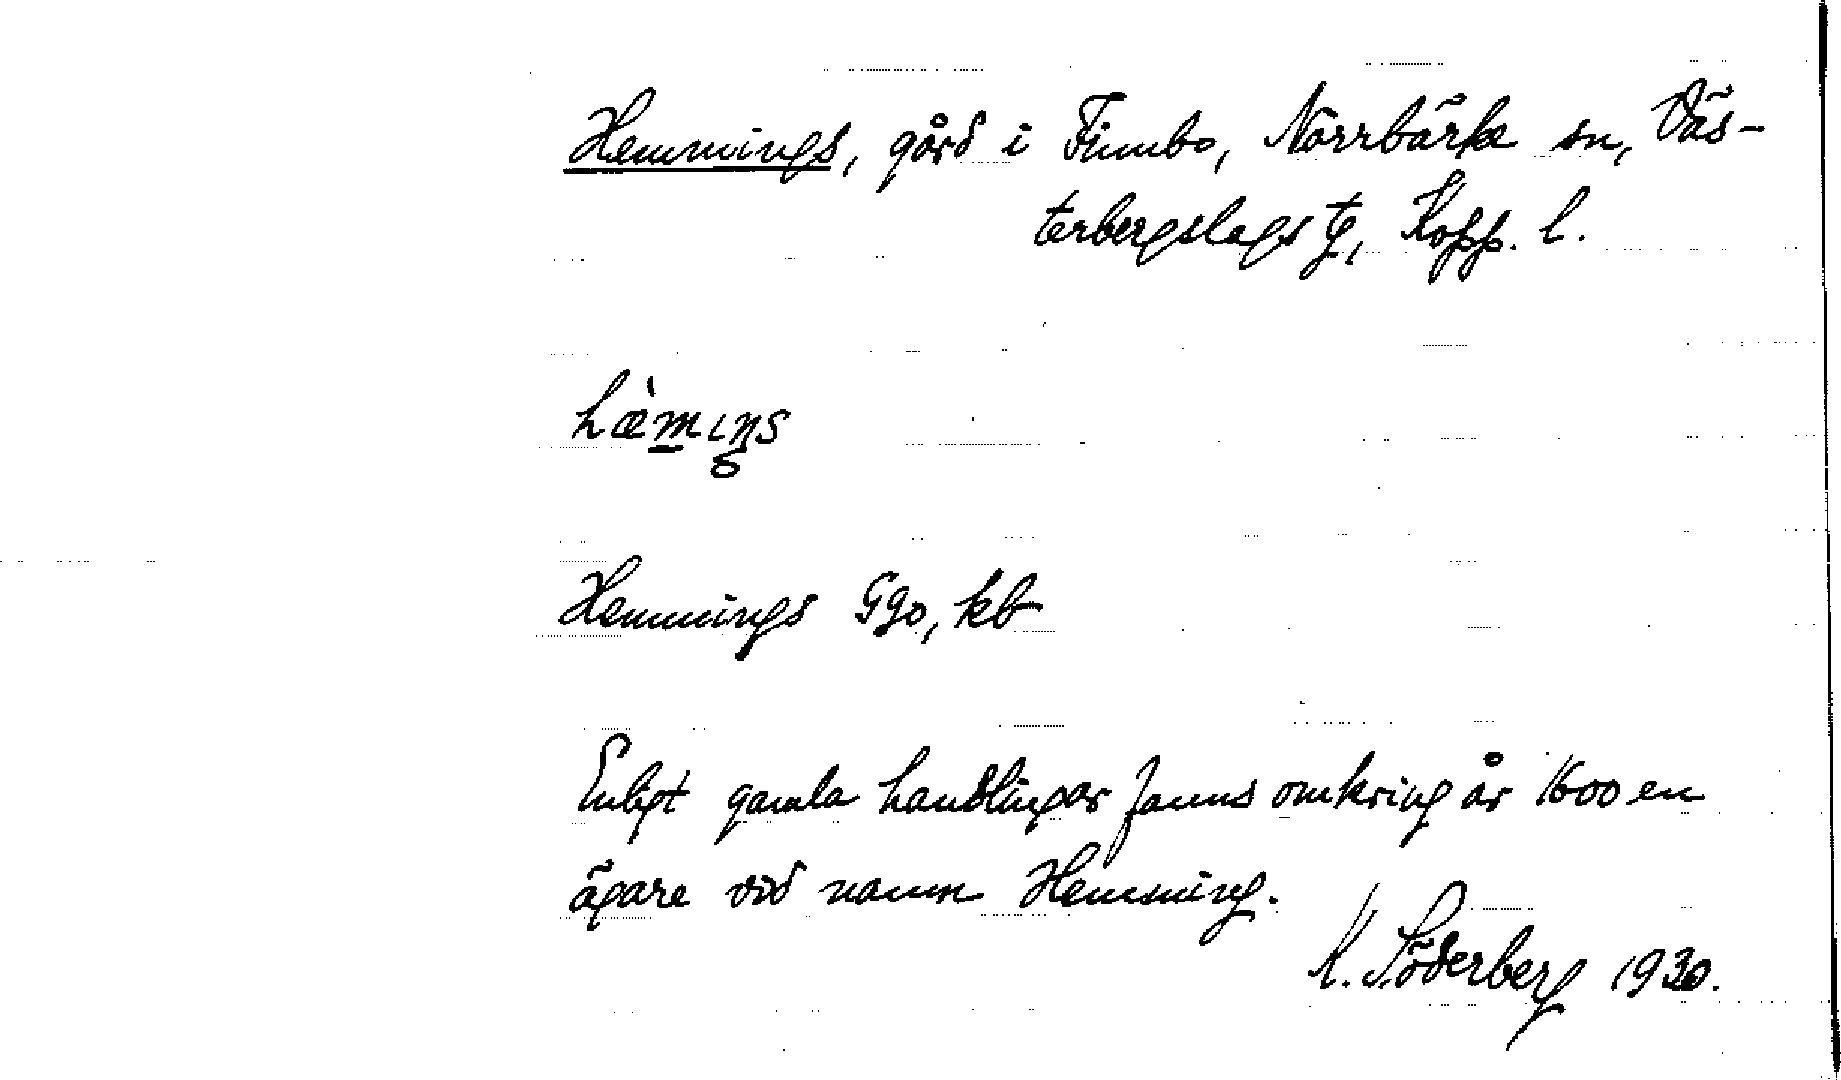 Hemmings, gård i Finnbo, Norrbärke sn, Väs-
terbergslags tg, Kopp. l.
hæ̀m̲ıŋs
Hemmings Ggo, kb
Enligt gamla handlingar fanns omkring år 1600 en
ägare vid namn Hemming.
K. Söderberg 1930.